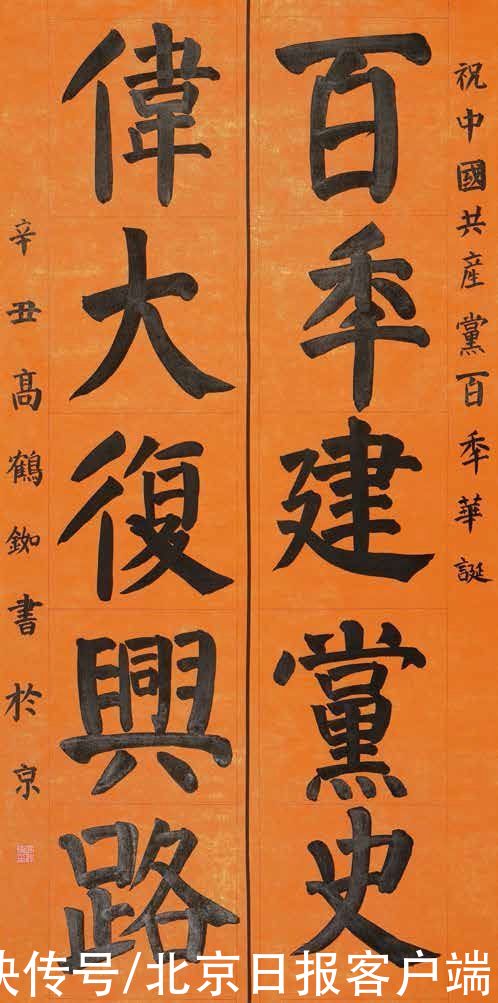 祝中國共産黨百秊華誕
百秊建黨史
偉大復興路
辛丑髙鶴書於京
快传号/北京日报客户端